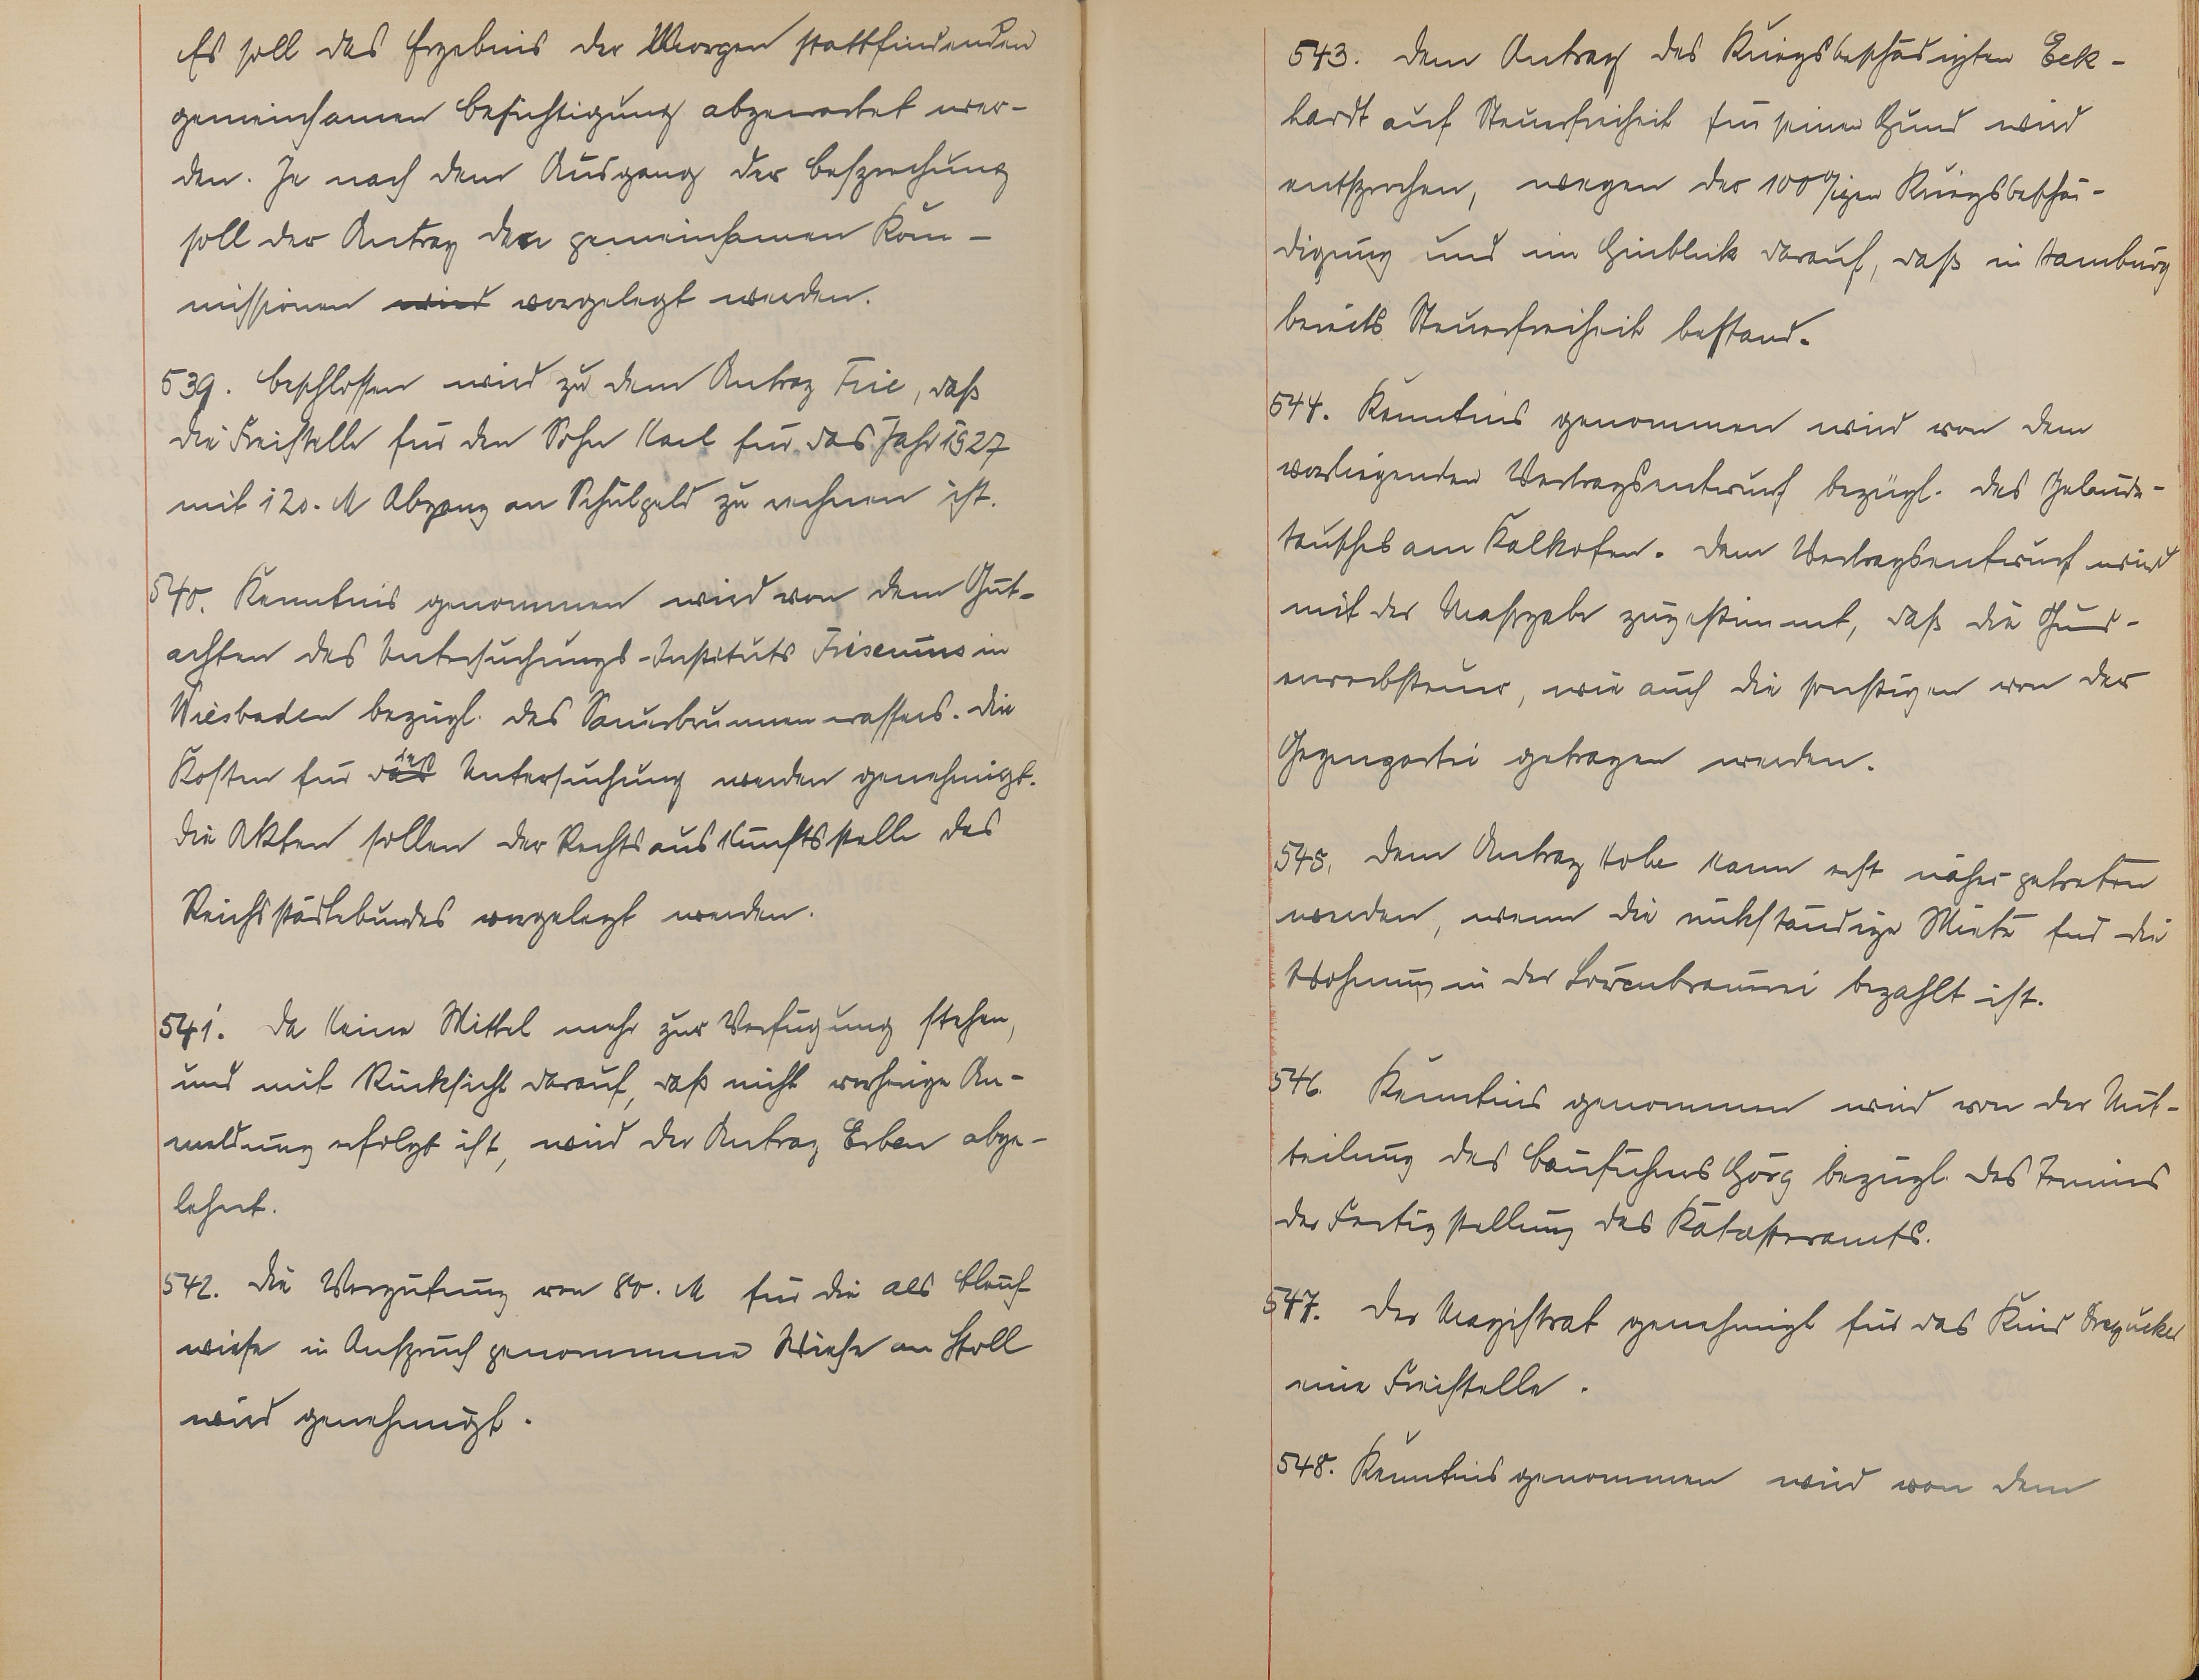 Es soll das Ergebnis der Morgen stattfindenden
gemeinsamen Besichtigung abgewartet wer-
den. Je nach dem Ausgang der Besprechung
soll der Antrag den gemeinsamen Kom-
missionen wird vorgelegt werden.
539. Beschlossen wird zu dem Antrag Frie, daß
die Freistelle für den Sohn Karl für das Jahr 1927
mit 120. M Abgang an Schulgeld zu rechnen ist.
540. Kenntnis genommen wird von dem Gut-
achten des Untersuchungs-Instituts Fresenius in
Wiesbaden bezügl. des Sauerbrunnenwassers. Die
Kosten für das die Untersuchung werden genehmigt.
Die Akten sollen der Rechtsauskunftsstelle des
Reichsstädtebundes vorgelegt werden.
541. Da keine Mittel mehr zur Verfügung stehen,
und mit Rücksicht darauf, daß nicht vorherige An-
meldung erfolgt ist, wird der Antrag Erben abge-
lehnt.
542. Die Vergütung von 80. M für die als Bleich-
wiese in Anspruch genommene Wiese an Stoll
wird genehmigt.
543. Dem Antrag des Kriegsbeschädigten Eck-
hardt auf Steuerfreiheit für seinen Hund wird
entsprochen, wegen der 100%igen Kriegsbeschä-
digung und im Hinblick darauf, daß in Hamburg
bereits Steuerfreiheit bestand.
544. Kenntnis genommen wird von dem
vorliegenden Vertragsentwurf bezügl. des Gelände-
tausches am Kalkofen. Dem Vertragsentwurf wird
mit der Maßgabe zugestimmt, daß die Grund-
erwerbsteuer, wie auch die sonstigen von der
Gegenpartei getragen werden.
545. Dem Antrag Kobe kann erst näher getreten
werden, wenn die rückständige Miete für die
Wohnung in der Löwenbrauerei bezahlt ist.
546. Kenntnis genommen wird von der Mit-
teilung des Bauführers Görg bezügl. des Termins
der Fertigstellung des Katasteramts.
547. Der Magistrat genehmigt für das Kind
eine Freistelle.
548. Kenntnis genommen wird von dem